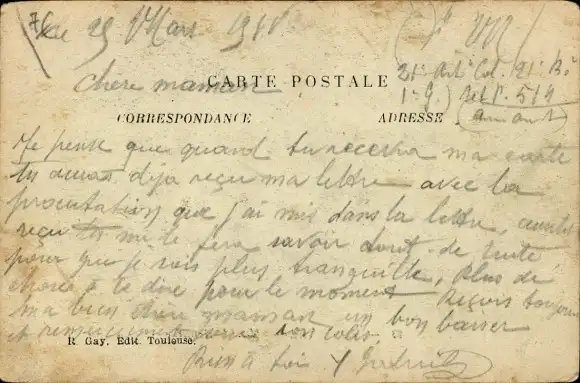 le 29 Mars 1918
Chere maman
CARTE POSTALE
CORRESPONDANCE
ADRESSE
21e Art Col. 21e Bie
1e G. Sect P. 514
Je pense que quand tu recevra ma carte
tu auras déja reçu ma lettre avec la
procuration que j'ai mis dans la lettre,
reçu tu me le fera savoir tout de suite
pour que je sois plus tranquille, plus de
chose à te dire pour le moment Reçois toujours
ma bien chere maman un bon baiser
et remerciement ton colis.
R. Gay, Edit. Toulouse.
Bien à toi